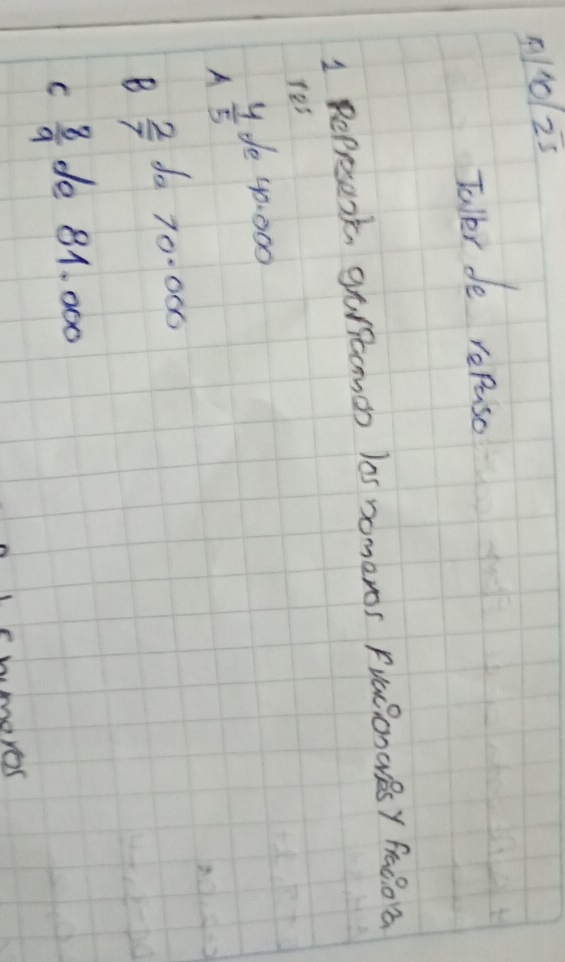 /10/25
Taller de repaso
1 Representa graficando los nomeros fracionares y fraciona
res
A 4/5 de 40.000
B 2/7 de 70.000
C 8/9 de 81.000
numeros